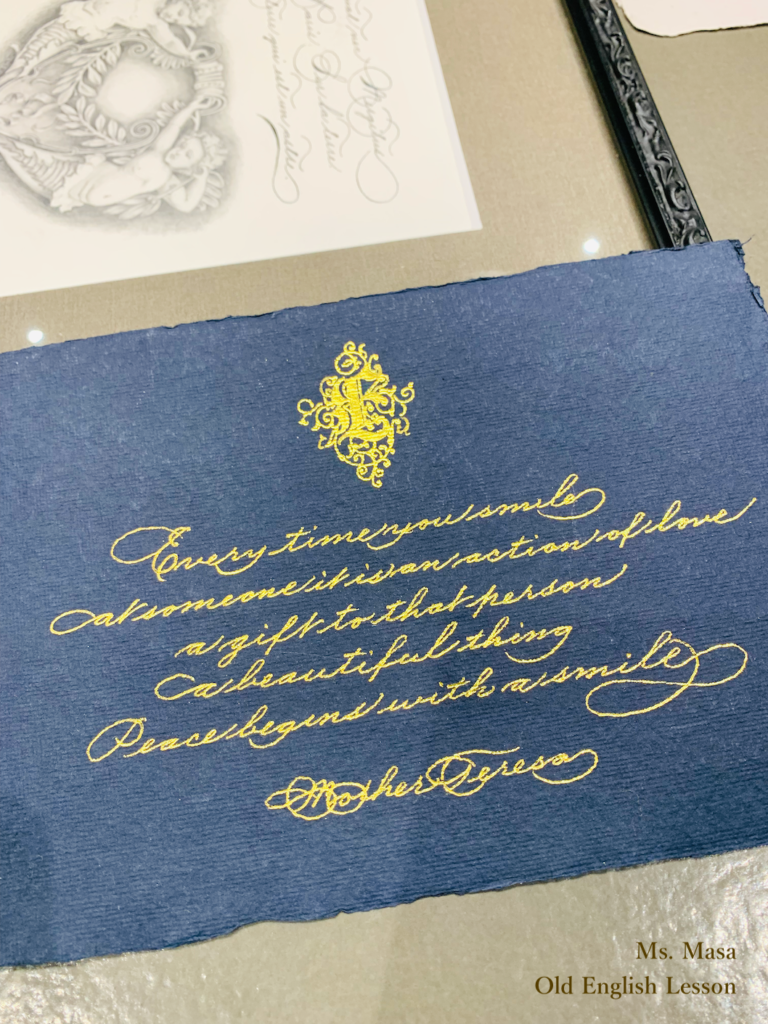 E
Every time you smile
at someone it is an action of love
a gift to that person
a beautiful thing
Peace begins with a smile
Mother Teresa
Ms. Masa
Old English Lesson